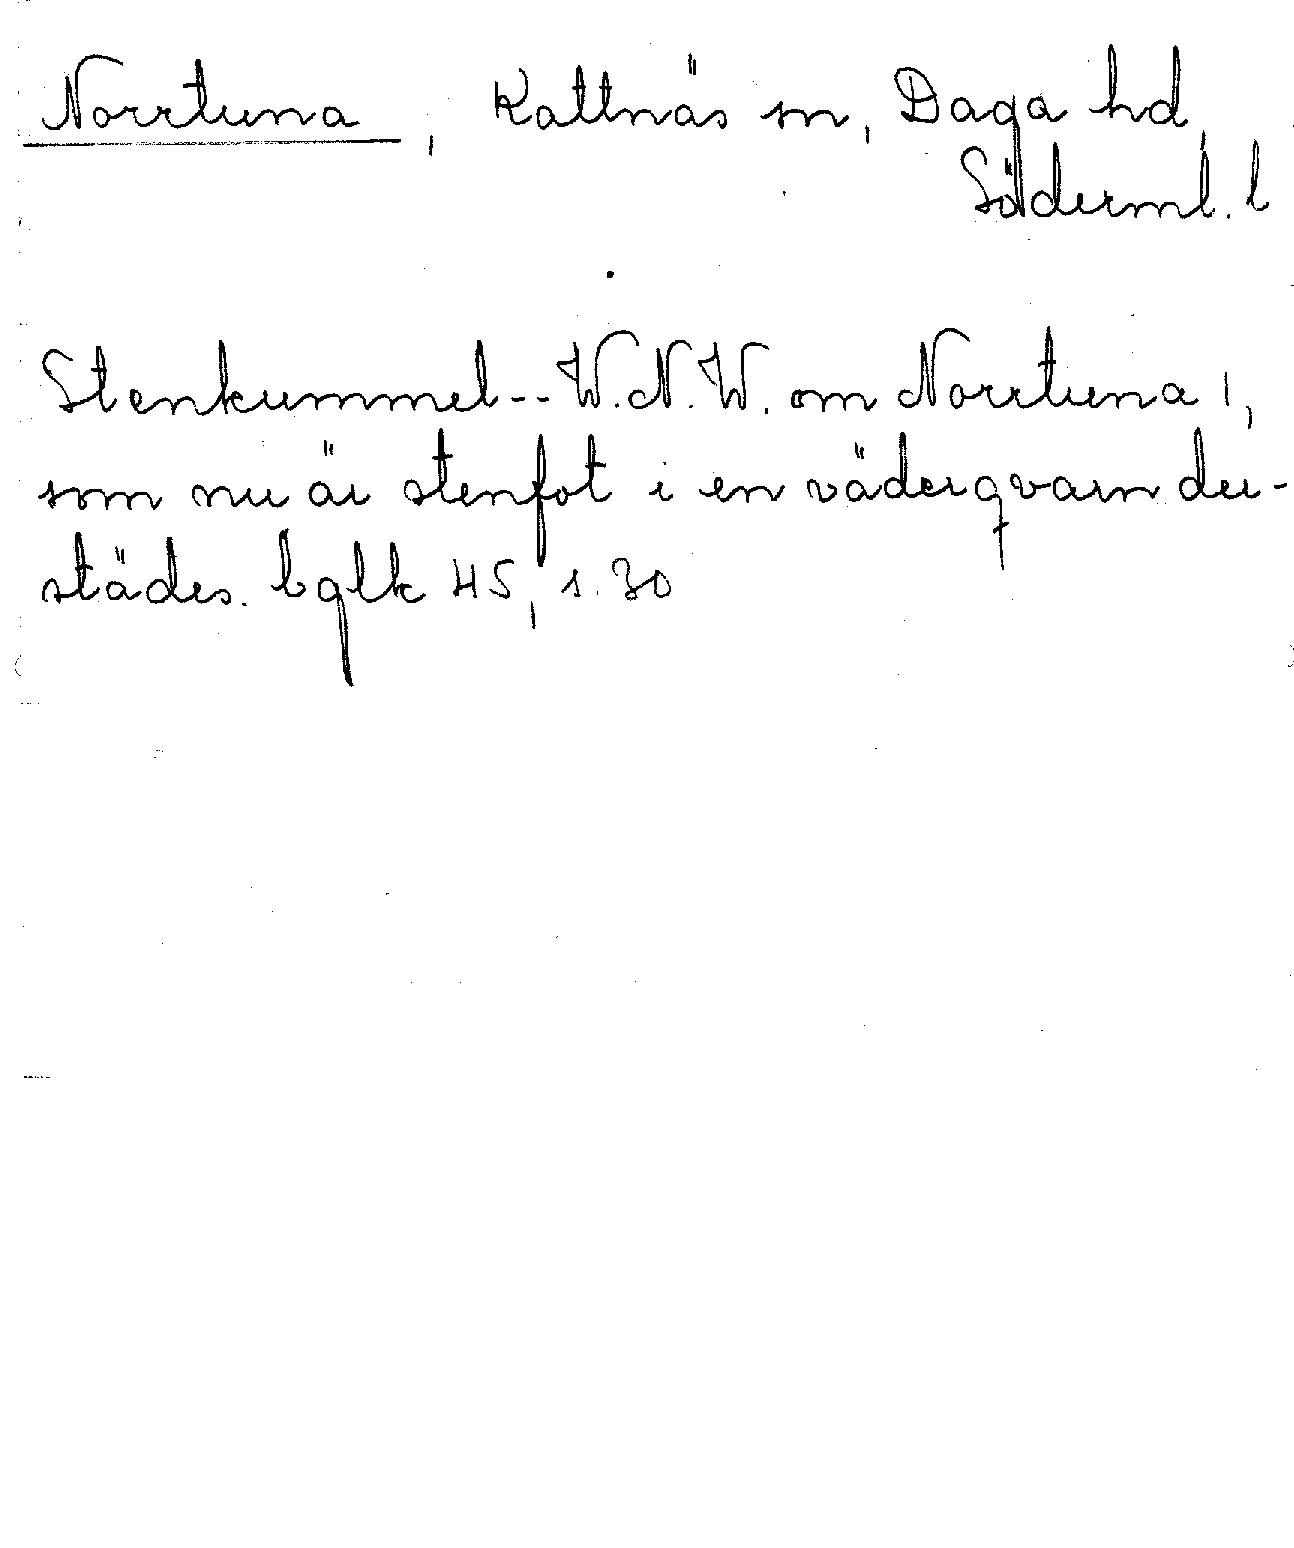 Norrtuna, Kattnäs sn, Daga hd,
Söderml. l
Stenkummel -- W.N.W. om Norrtuna 1,
som nu är stenfot i en väderqvarn der-
städes. bglk 45, s. 30